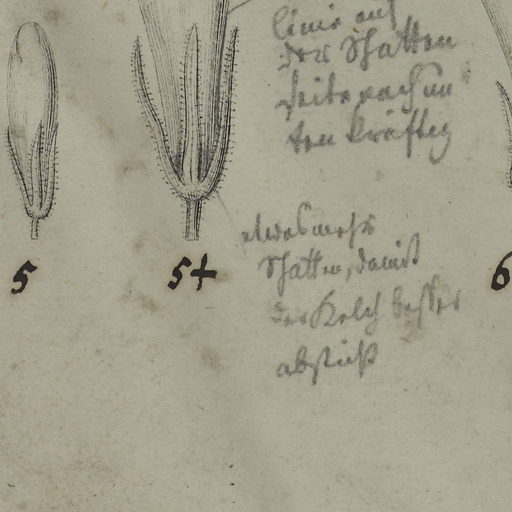 linie auf
der Schatten
seite nach un
ten kräftig
etwas mehr
Schatten, damit
der Kelch besser
abstießt
5
5+
6